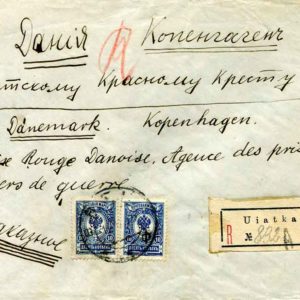 Данія Копенгагенъ
тскому Красному Кресту
Dänemark. Kopenhagen.
ix Rouge Danoise, Agence des pris
ers de guerre
аказное
Ujatka
R №